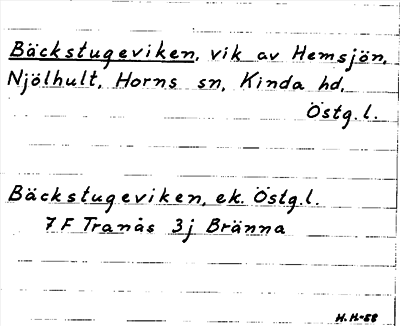 Bäckstugeviken, vik av Hemsjön,
Njölhult, Horns sn, Kinda hd,
Östg.l.
Bäckstugeviken, ek. Östg.l.
7 F Tranås 3j Bränna
H.H-58